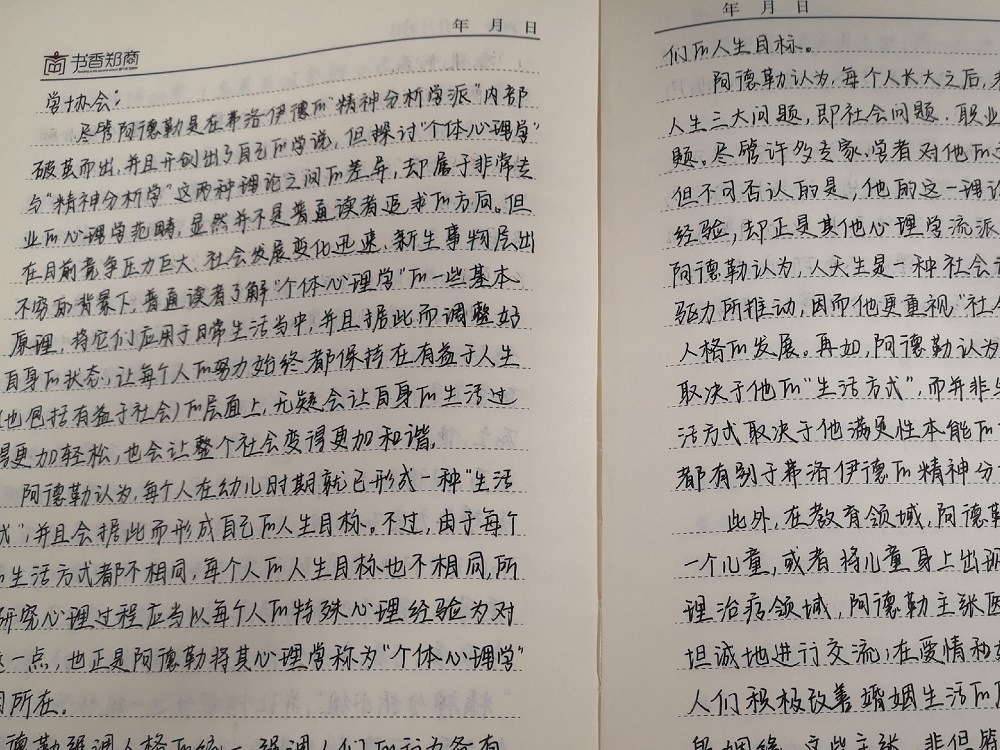 年 月 日
书香郑商
学协会；
尽管阿德勒是在弗洛伊德的"精神分析学派"内部
破茧而出，并且开创出了自己的学说，但探讨"个体心理学"
与"精神分析学"这两种理论之间的差异，却属于非常专
业的心理学范畴，显然并不是普通读者追求的方向。但
在目前竞争压力巨大、社会发展变化迅速、新生事物层出
不穷的背景下，普通读者了解"个体心理学"的一些基本
原理，将它们应用于日常生活当中，并且据此而调整好
自身的状态，让每个人的努力始终都保持在有益于人生
（也包括有益于社会）的层面上，无疑会让自身的生活过
得更加轻松，也会让整个社会变得更加和谐。
阿德勒认为，每个人在幼儿时期就已形成一种"生活
式"，并且会据此而形成自己的人生目标。不过，由于每个
生活方式都不相同，每个人的人生目标也不相同，所
研究心理过程应当以每个人的特殊心理经验为对
这一点，也正是阿德勒将其心理学称为"个体心理学"
因所在。
德勒强调人格的统一，强调人们的行为各有
年 月 日
们的人生目标。
阿德勒认为，每个人长大之后，
人生三大问题，即社会问题、职业
题。尽管许多专家、学者对他的
但不可否认的是，他的这一理论
经验，却正是其他心理学流派
阿德勒认为，人天生是一种社会
驱力所推动，因而他更重视"社会
人格的发展。再如，阿德勒认为
取决于他的"生活方式"，而并非
活方式取决于他满足性本能的
都有别于弗洛伊德的精神分
此外，在教育领域，阿德勒
一个儿童，或者将儿童身上出现
理治疗领域，阿德勒主张医
坦诚地进行交流；在爱情和
人们积极改善婚姻生活的
的姻缘。这些主张，非但